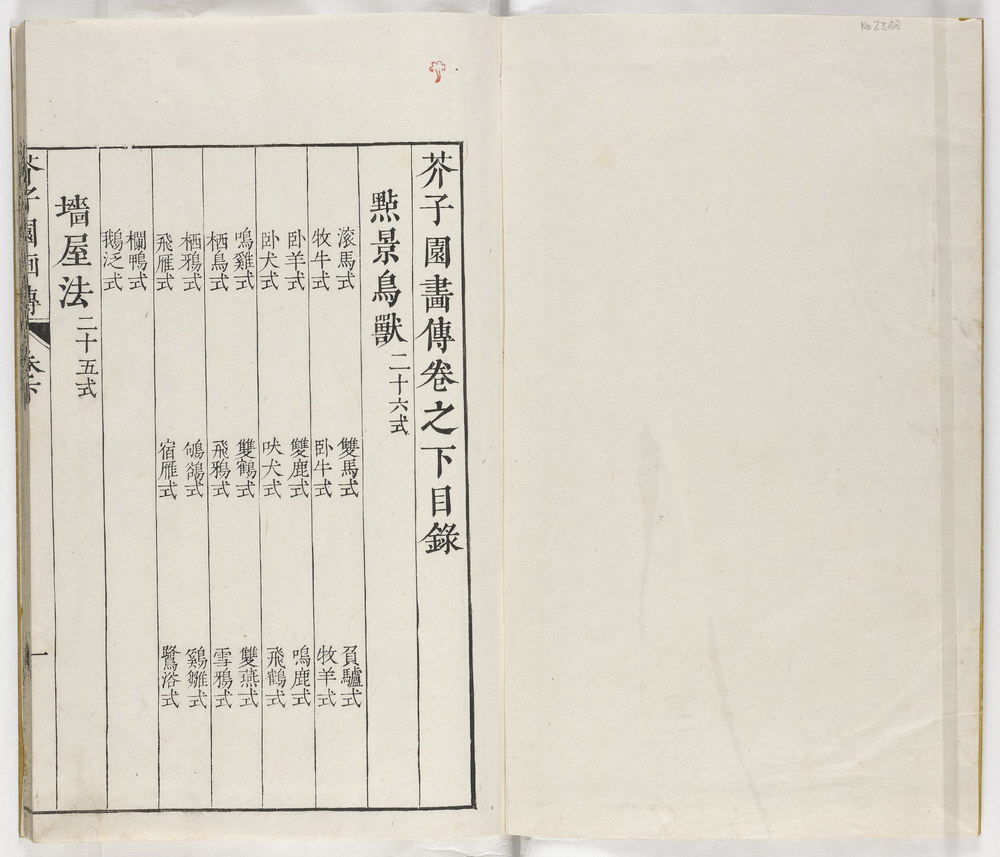 No 2388
芥子園畵傳卷之下目錄
點景鳥獸二十六式
滚馬式 雙馬式 負驢式
牧牛式 卧牛式 牧羊式
卧羊式 雙鹿式 鳴鹿式
卧犬式 吠犬式 飛鶴式
鳴雞式 雙鶴式 雙燕式
栖鳥式 飛鴉式 雪鴉式
栖鴉式 鴝鵒式 鷄雛式
飛雁式 宿雁式 鷺浴式
欄鴨式
鵝泛式
墻屋法二十五式
芥子園画傳 卷下 一